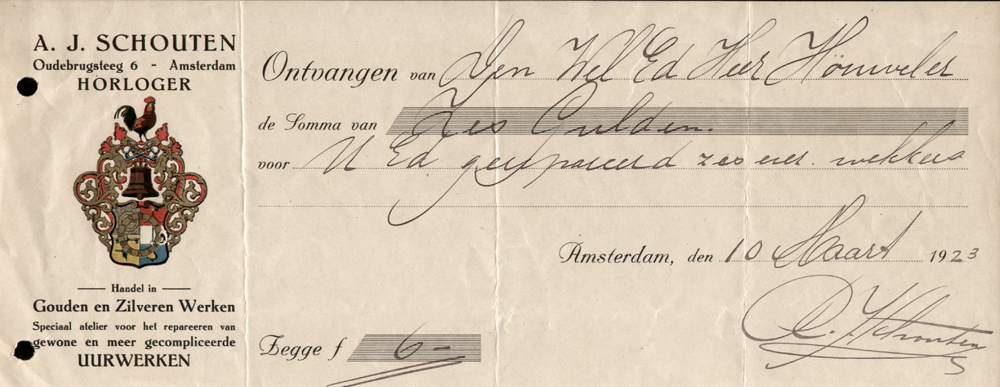 A. J. SCHOUTEN
Oudebrugsteeg 6 - Amsterdam
HORLOGER
Handel in
Gouden en Zilveren Werken
Speciaal atelier voor het repareeren van
gewone en meer gecompliceerde
UURWERKEN
Ontvangen van Den Wel Ed Heer
de Somma van Zes Gulden.
voor U Ed gerepareerd wekkers
Amsterdam, den 10 Maart 1923
Schouten
Zegge f 6-